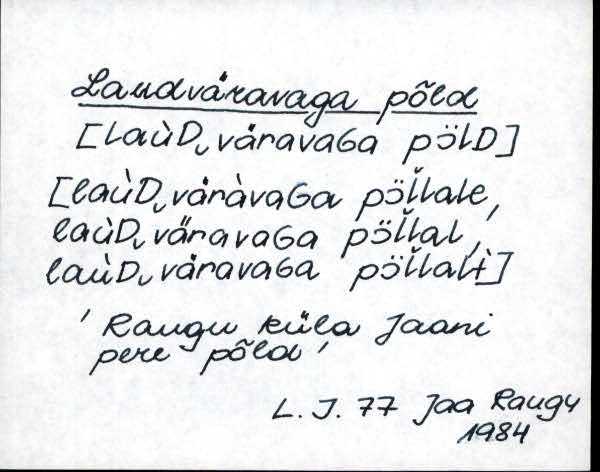 Laudväravaga põld
[laùDᴗväravaGa pölD]
[laùDᴗväràvaGa pöl̆lale,
laùDᴗväravaGa pöl̆lal,
laùDᴗväravaGa pöl̆lalt]
'Raugu küla Jaani
pere põld'
L. J. 77 Jaa Raugu
1984